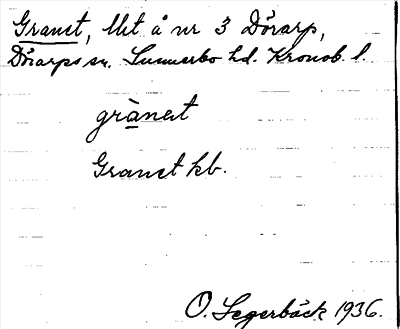 Granet, lht å nr 3 Dörarp,
Dörarps sn. Sunnerbo hd. Kronob. l.
grànet
Granet kb.
O. Segerbäck 1936.